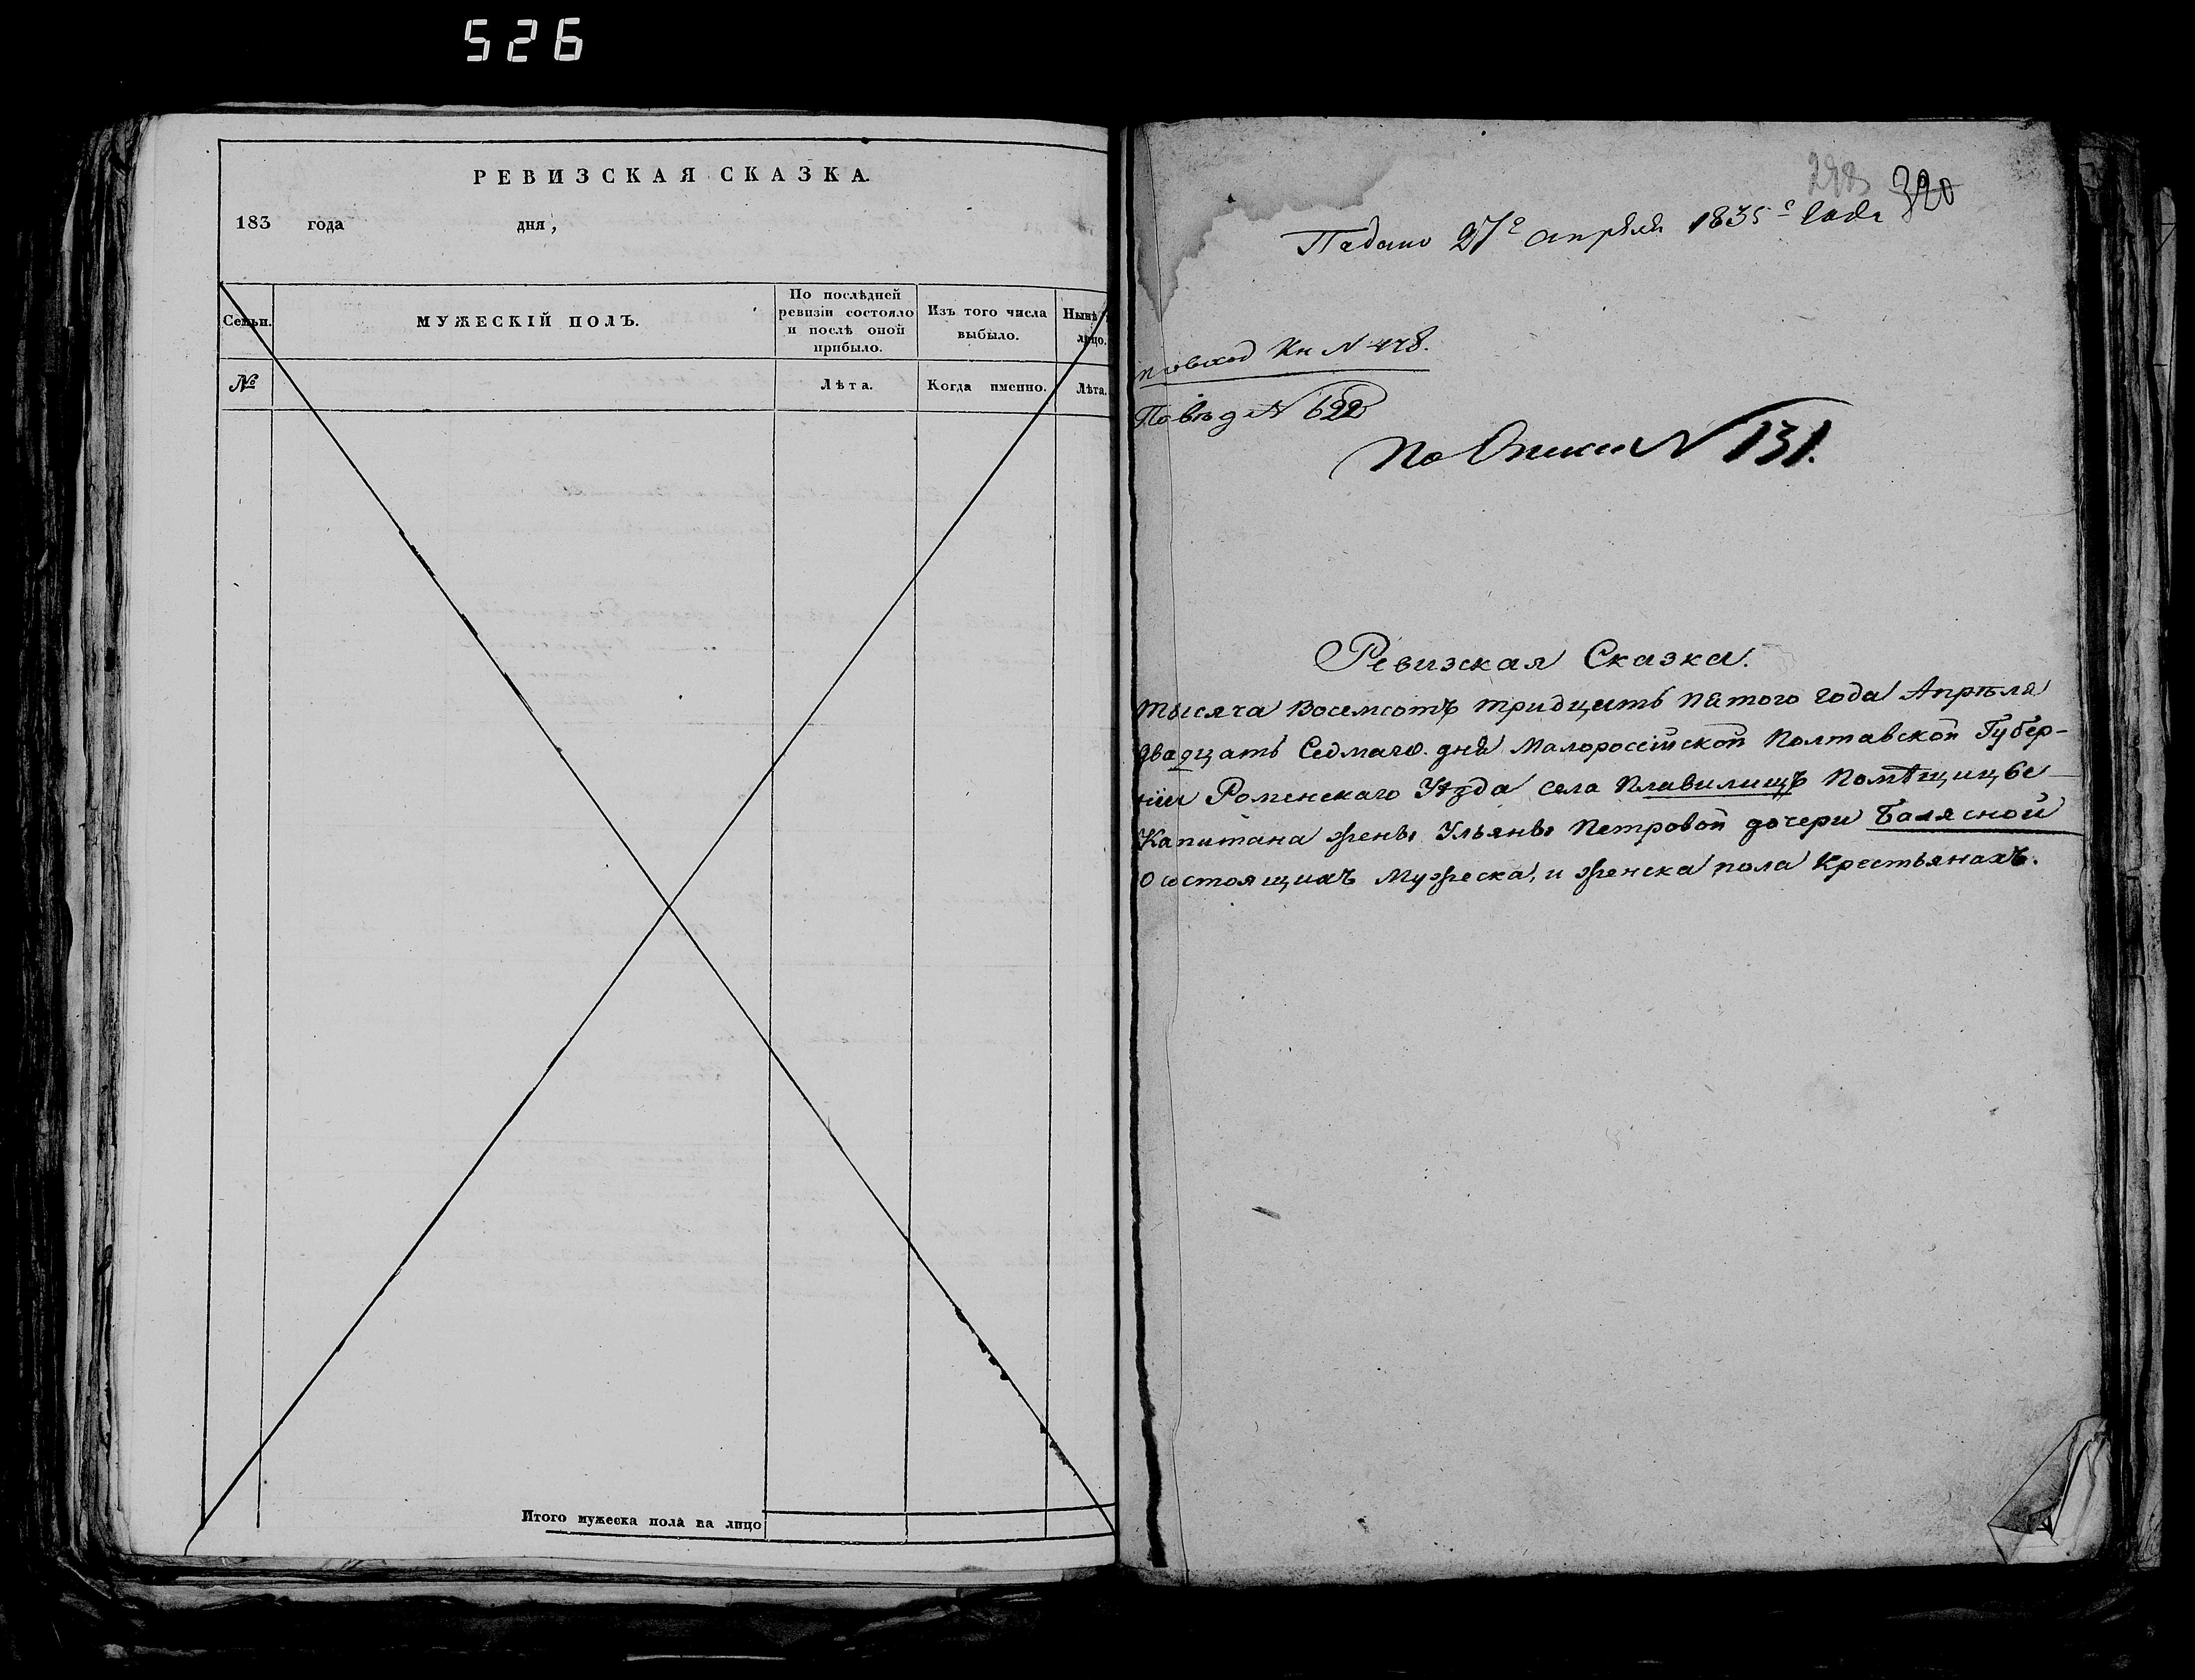 526
РЕВИЗСКАЯ СКАЗКА.
183 года дня,
Семьи.
МУЖЕСКІЙ ПОЛЪ.
По послѣдней
ревизіи состояло
и послѣ оной
прибыло.
Изъ того числа
выбыло.
Нынѣ
лицо.
№
Лѣта.
Когда именно.
Лѣта.
Итого мужеска пола на лицо
320
Подано 27го апреля 1835го года
Кн N 448.
N 622
По Описи N 131.
Ревизская Сказка.
тысяча Восемсотъ тридцать пятого года Апрѣля
двадцать Седмаго дня Малоросеійской Полтавской Губер-
ніи Роменскаго Уѣзда села Плавилищъ Помѣщицы
Капитана жены Ульяны Петровой дочери Балясной
О состоящихъ Мужеска, и женска пола Крестьянахъ.